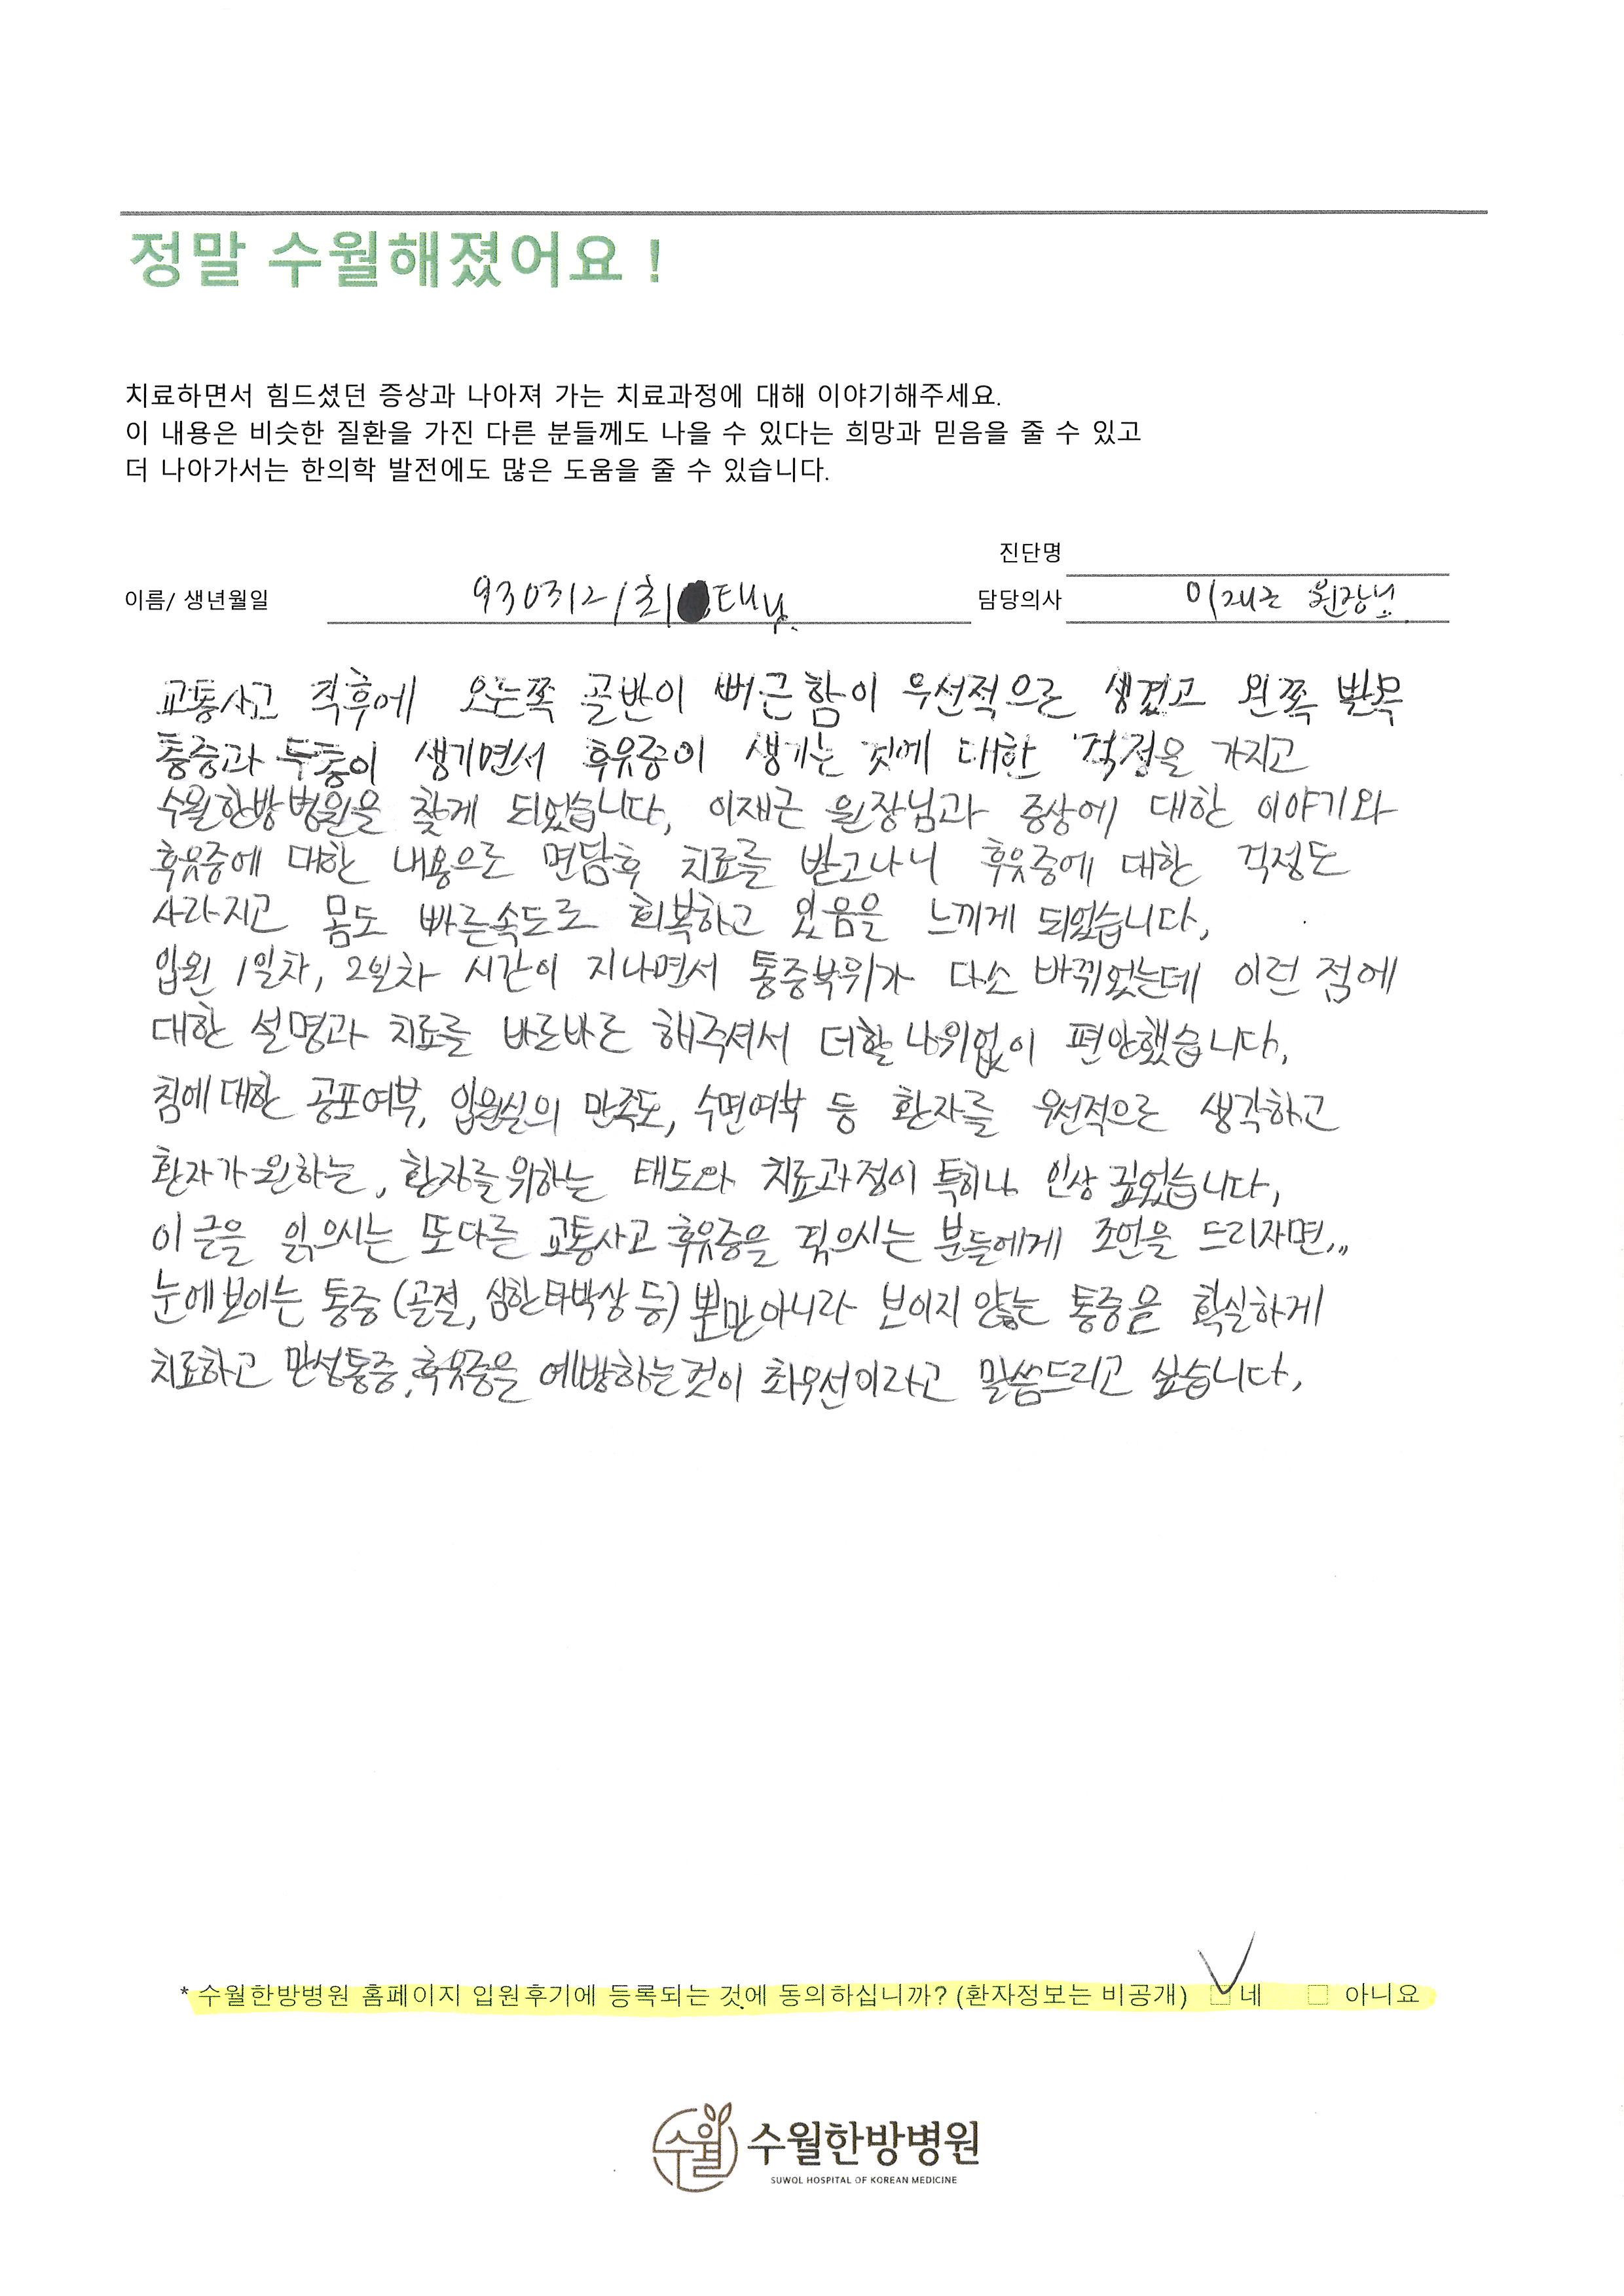 정말 수월해졌어요 !
치료하면서 힘드셨던 증상과 나아져 가는 치료과정에 대해 이야기해주세요.
이 내용은 비슷한 질환을 가진 다른 분들께도 나을 수 있다는 희망과 믿음을 줄 수 있고
더 나아가서는 한의학 발전에도 많은 도움을 줄 수 있습니다.
진단명
이름/ 생년월일 930312 / 최 태 담당의사 이재근 원장님
교통사고 직후에 오른쪽 골반이 뻐근함이 우선적으로 생겼고 왼쪽 발목
통증과 두통이 생기면서 후유증이 생기는 것에 대한 걱정을 가지고
수월한방병원을 찾게 되었습니다, 이재근 원장님과 증상에 대한 이야기와
후유증에 대한 내용으로 면담후 치료를 받고나니 후유증에 대한 걱정도
사라지고 몸도 빠른속도로 회복하고 있음을 느끼게 되었습니다,
입원 1일차, 2일차 시간이 지나면서 통증부위가 다소 바뀌었는데 이런 점에
대한 설명과 치료를 바로바로 해주셔서 더할나위없이 편안했습니다,
침에대한 공포여부, 입원실의 만족도, 수면여부 등 환자를 우선적으로 생각하고
환자가 원하는, 환자를위하는 태도와 치료과정이 특히나 인상 깊었습니다,
이 글을 읽으시는 또다른 교통사고 후유증을 겪으시는 분들에게 조언을 드리자면,,,
눈에보이는 통증 (골절, 심한타박상 등) 뿐만아니라 보이지 않는 통증을 확실하게
치료하고 만성통증, 후유증을 예방하는것이 최우선이라고 말씀드리고 싶습니다,
* 수월한방병원 홈페이지 입원후기에 등록되는 것에 동의하십니까? (환자정보는 비공개) 네 아니요
수월 수월한방병원
SUWOL HOSPITAL OF KOREAN MEDICINE